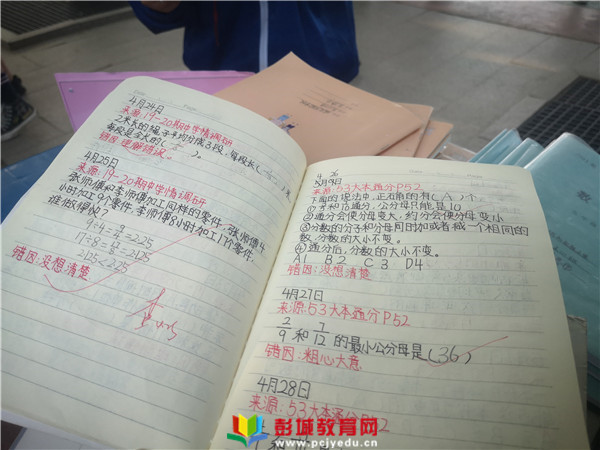 4月24日
来源:19-20期中学情调研
2米长的绳子平均分成3段,每段长
每段是全长的( )。
错因:理解错误。
4月25日
来源:19-20期中学情调研
张师傅和李师傅加工同样的零件,张师傅4
小时加工9个零件,李师傅8小时加工17个零件,
谁做得快?
9÷4=9/4=2.25
17÷8=17/8=2.125
2.125<2.25
错因:没想清楚
4 26
来源:53大本通分P52
下面的说法中,正确的有(A)个。
②通分会使分母变大,约分会使分母变小
③分数的分子和分母同时加或者减一个相同的
数,分数的大小不变。
④通分后,分数的大小不变。
A1 B2 C3 D4
错因:没想清楚
4月27日
来源:53大本通分P52
2/9和7/12的最小公分母是(36)
错因:粗心大意
4月28日
来源:53大本通分P52
数
彭城教育网
www.pcjyedu.cn